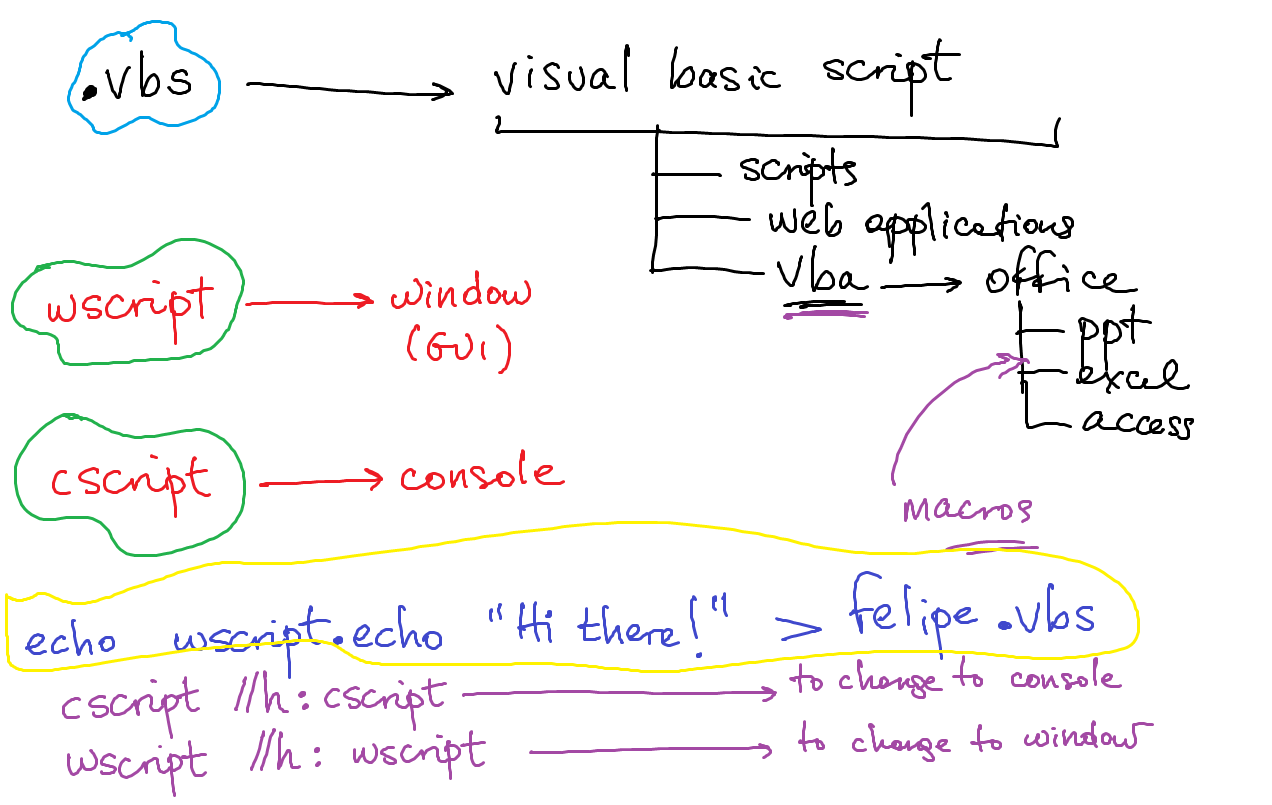 .vbs → visual basic script
scripts
web applications
vba → office
wscript → window
(GUI)
ppt
excel
access
cscript → console
macros
echo wscript.echo "Hi there!" > felipe.vbs
cscript //h: cscript → to change to console
wscript //h: wscript → to change to window